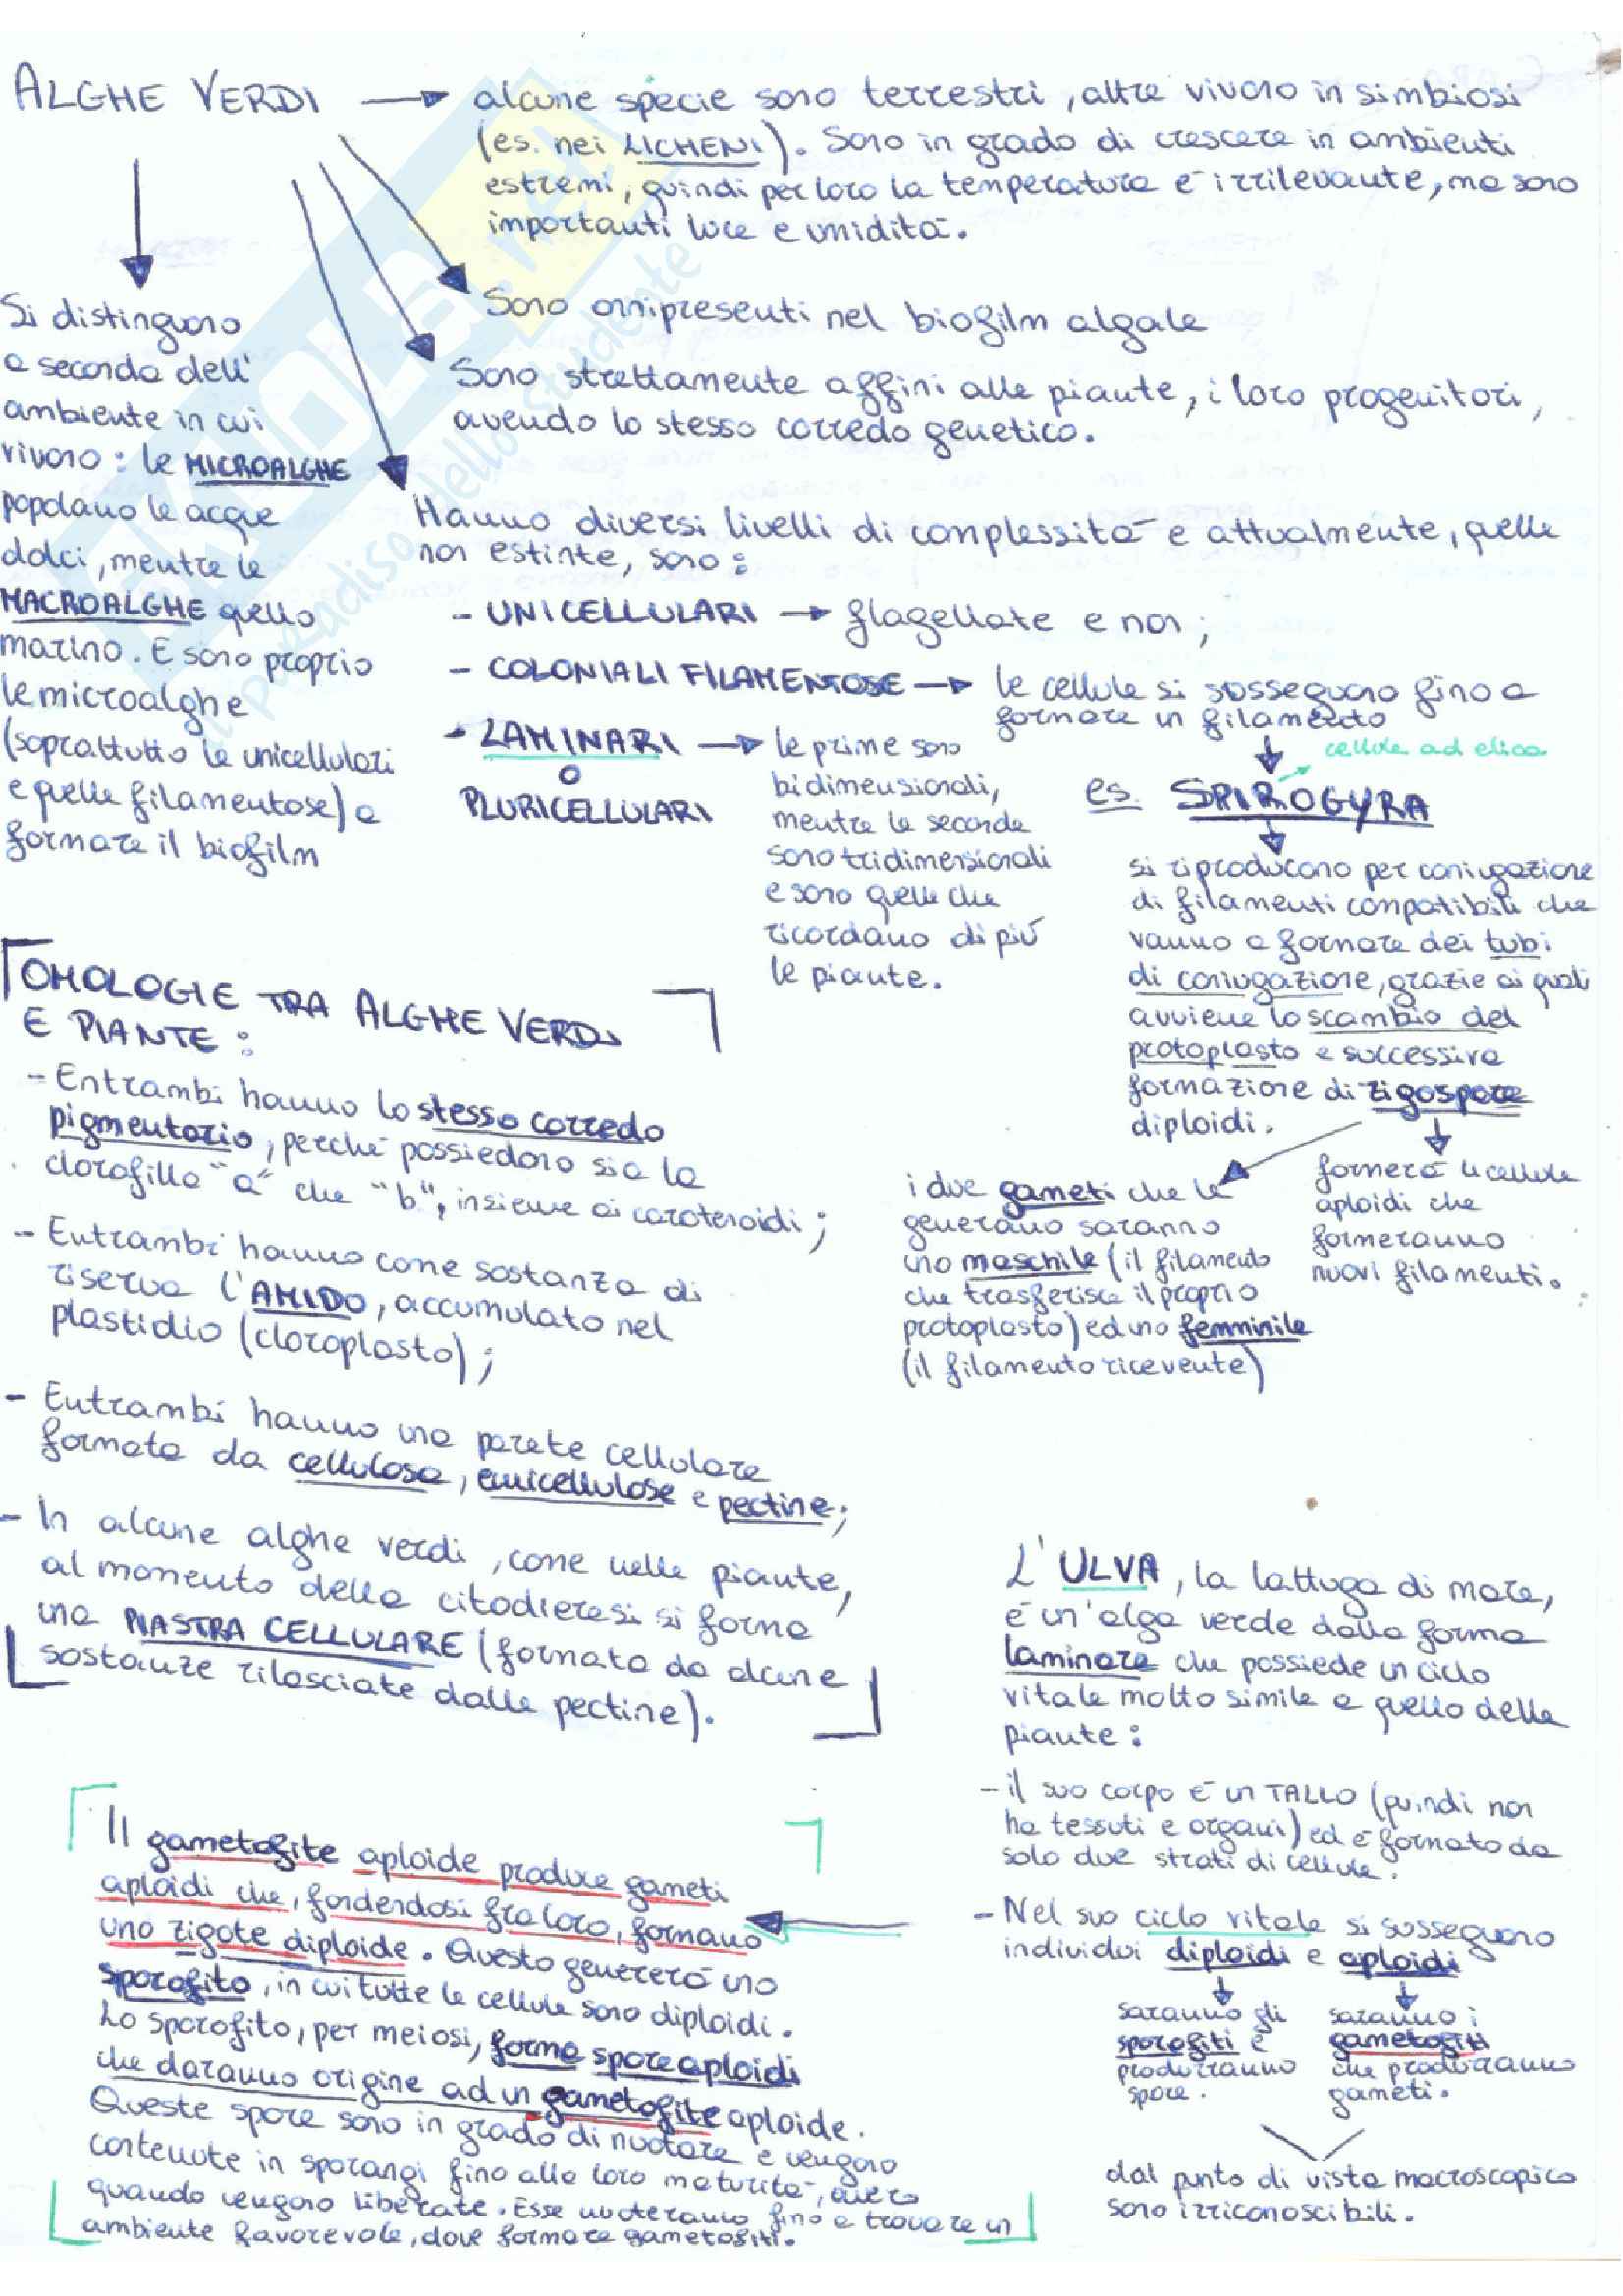 ALGHE VERDI → alcune specie sono terrestri, altre vivono in simbiosi
(es. nei LICHENI). Sono in grado di crescere in ambienti
estremi, quindi per loro la temperatura è irrilevante, ma sono
importanti luce e umidità.
Sono onnipresenti nel biofilm algale
Sono strettamente affini alle piante, i loro progenitori,
avendo lo stesso corredo genetico.
Hanno diversi livelli di complessità e attualmente, quelle
non estinte, sono:
- UNICELLULARI → flagellate e non;
- COLONIALI FILAMENTOSE → le cellule si susseguono fino a
formare un filamento
cellule ad elica
es. SPIROGYRA
si riproducono per coniugazione
di filamenti compatibili che
vanno a formare dei tubi
di coniugazione, grazie ai quali
avviene lo scambio del
protoplasto e successiva
formazione di zigospore
diploidi.
i due gameti che le
generano saranno
uno maschile (il filamento
che trasferisce il proprio
protoplasto) ed uno femminile
(il filamento ricevente)
formerà le cellule
aploidi che
formeranno
nuovi filamenti.
- LAMINARI
O
PLURICELLULARI
→ le prime sono
bidimensionali,
mentre le seconde
sono tridimensionali
e sono quelle che
ricordano di più
le piante.
Si distinguono
a seconda dell'
ambiente in cui
vivono: le MICROALGHE
popolano le acque
dolci, mentre le
MACROALGHE quello
marino. E sono proprio
le microalghe
(soprattutto le unicellulari
e quelle filamentose) a
formare il biofilm
OMOLOGIE TRA ALGHE VERDI
E PIANTE:
- Entrambi hanno lo stesso corredo
pigmentario, perché possiedono sia la
clorofilla "a" che "b", insieme ai carotenoidi;
- Entrambi hanno come sostanza di
riserva l'AMIDO, accumulato nel
plastidio (cloroplasto);
- Entrambi hanno una parete cellulare
formata da cellulosa, emicellulose e pectine;
- In alcune alghe verdi, come nelle piante,
al momento della citodieresi si forma
una PIASTRA CELLULARE (formata da alcune
sostanze rilasciate dalle pectine).
L'ULVA, la lattuga di mare,
è un'alga verde dalla forma
laminare che possiede un ciclo
vitale molto simile a quello delle
piante:
- il suo corpo è un TALLO (quindi non
ha tessuti e organi) ed è formato da
solo due strati di cellule.
- Nel suo ciclo vitale si susseguono
individui diploidi e aploidi
saranno gli
sporofiti e
produrranno
spore.
saranno i
gametofiti
che produrranno
gameti.
dal punto di vista macroscopico
sono irriconoscibili.
Il gametofite aploide produce gameti
aploidi che, fondendosi fra loro, formano
uno zigote diploide. Questo genererà uno
sporofito, in cui tutte le cellule sono diploidi.
Lo sporofito, per meiosi, forma spore aploidi
che daranno origine ad un gametofite aploide.
Queste spore sono in grado di nuotare e vengono
contenute in sporangi fino alla loro maturità, ovvero
quando vengono liberate. Esse nuoteranno fino a trovare un
ambiente favorevole, dove formare gametofiti.
SKUOLA.net
il paradiso dello studente